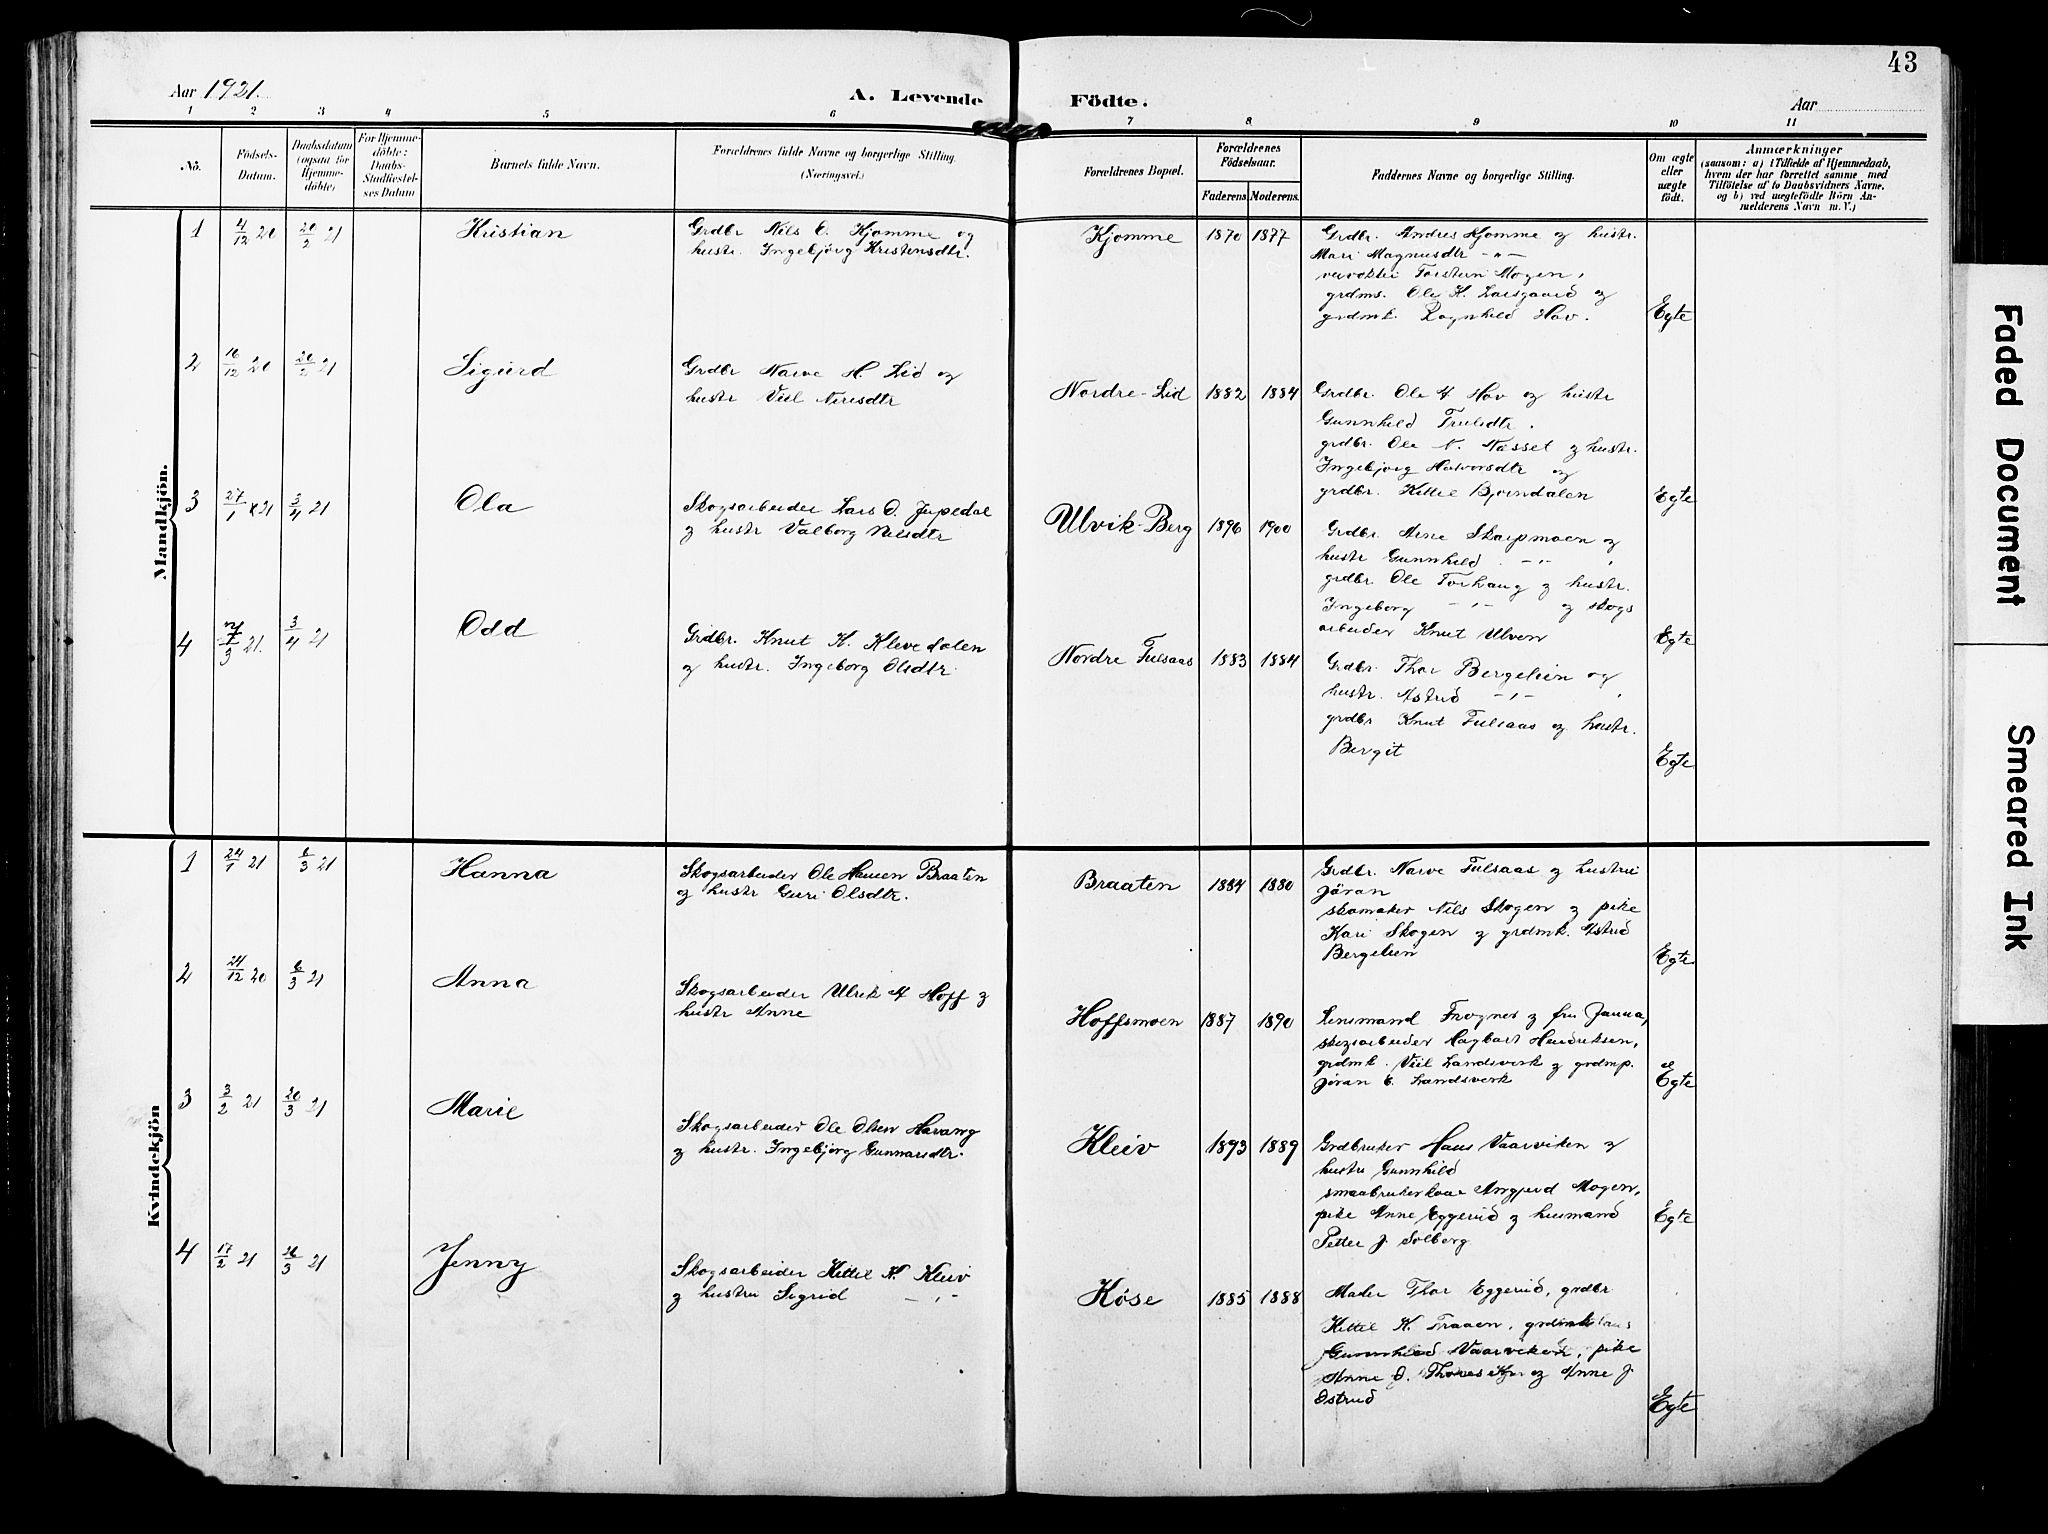 43
Aar 1921.
A. Levende Födte.
Aar
1 2 3 4 5 6 7 8 9 10 11
No.
Födsels-
Datum.
Daabsdatum
(ogsaa for
Hjemme-
döbte)
For Hjemme-
döbte:
Daabs-
Stadfæstel-
ses Datum
Barnets fulde Navn.
Forældrenes fulde Navne og borgerlige Stilling.
(Næringsvei.)
Forældrenes Bopæl.
Forældrenes
Födselsaar.
Faderens Moderens.
Faddernes Navne og borgerlige Stilling.
Om ægte
eller
uægte
födt.
Anmærkninger
(saasom: a) i Tilfælde af Hjemmedaab,
hvem der har forrettet samme med
Tilföielse af to Daabsvidners Navne.
og b) ved uægtefödte Börn An-
melderens Navn m. V.)
Mandkjön.
1 4/12 20 20/2 21 Kristian
Grdbr Nils E. Kjomme og
hustr. Ingebjörg Kristensdtr.
Kjomme 1870 1877
Grdbr. Andres Kjomme og hustr.
Mari Magnusdtr -"-
Torstein Mogen,
grdms. Ole K. Larsgaard og
grdmk. Ragnhild Hov. Egte
2 16/12 20 20/2 21 Sigurd
Grdbr Narve H. Lid og
hustr Viil Nirisdtr
Nordre-Lid 1882 1884
Grdbr. Ole H Hov og hustr
Gunnhild Trulsdtr.
grdbr. Ole N. Næsset og hustr.
Ingebjorg Halvorsdtr og
grdbr. Kittil Bjorndalen Egte
3 27/1 21 3/4 21 Ola
Skogsarbeider Lars O. Jupedal
og hustr Valborg Nilsdtr
Ulvik-Berg 1896 1900
Grdbr. Arne Skarpmoen og
hustr Gunnhild -"-
grdbr. Ole Torhaug og hustr.
Ingeborg -"- og skogs
arbeider Knut Ulven Egte
4 /3 21. 3/4 21 Odd
Grdbr. Knut K. Klevedalen
og hustr. Ingeborg Olsdtr.
Nordre Fulsaas 1883 1884
Grdbr. Thor Bergelien og
hustr. Astrid -"-
grdbr Knut Fulsaas og hustr.
Bergit Egte
Kvindekjön
1 24/1 21 6/3 21 Hanna
Skogsarbeider Ole Hansen Braaten
og hustr Guri Olsdtr.
Braaten 1884 1880
Grdbr. Narve Fulsaas og hustru
Jöran
skomaker Nils Skogen og pike
Kari Skogen og grdmk. Astrid
Bergelien Egte
2 21/12 20 6/3 21 Anna
Skogsarbeider Ulrik H Hoff og
hustr Anne
Hoffsmoen 1887 1890
Lensmand Frogner og fru Janna,
skogsarbeider Hagbart Hendriksen,
grdmk. Viil Landsverk og grdmp.
Jöran E. Landsverk Egte
3 3/2 21 20/3 21 Marie
Skogsarbeider Ole Olsen Havang
og hustr. Ingebjörg Gunnarsdtr.
Kleiv 1893 1889
Grdbruker Hans Vaarviken og
hustru Gunnhild
smaabrukerkone Angjerd Mogen,
pike Anne Eggerud og husmand
Petter J. Solberg Egte
4 17/2 21 26/3 21 Jenny
Skogsarbeider Kittil K. Kleiv
og hustru Sigrid -"-
Köse 1885 1888
Maler Thor Eggerud, grdbr
Kittil K. Traaen,
Gunnhild Vaarviken, pike
Anne og Anne J.
Ostrud Egte
Faded Document
Smeared Ink